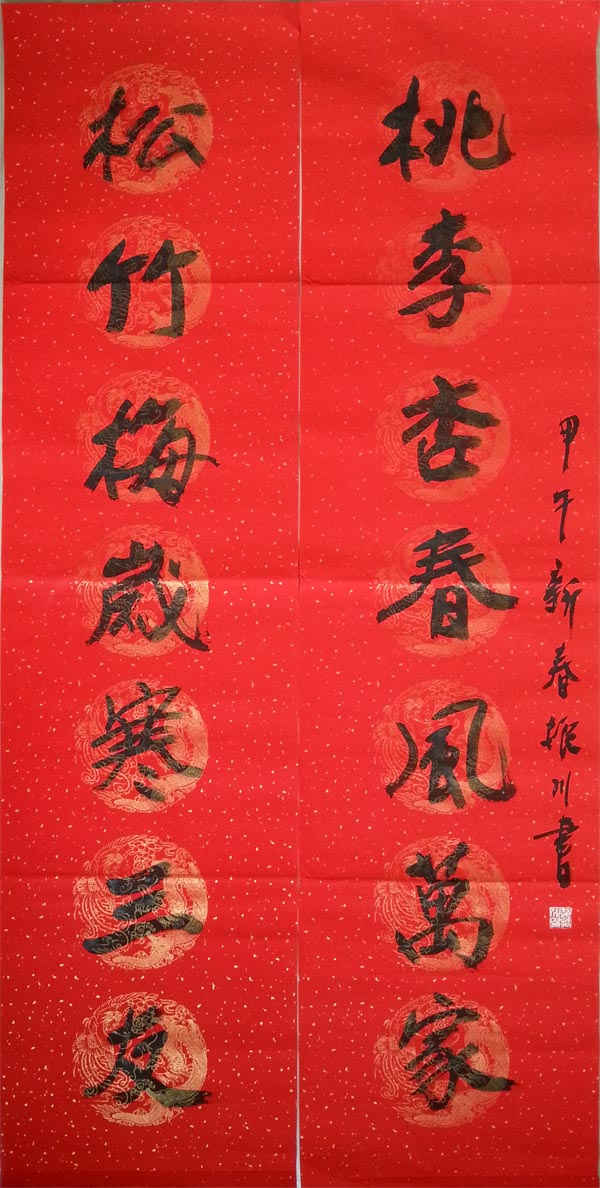 桃李杏春風萬家
甲午新春振川書
松竹梅歲寒三友